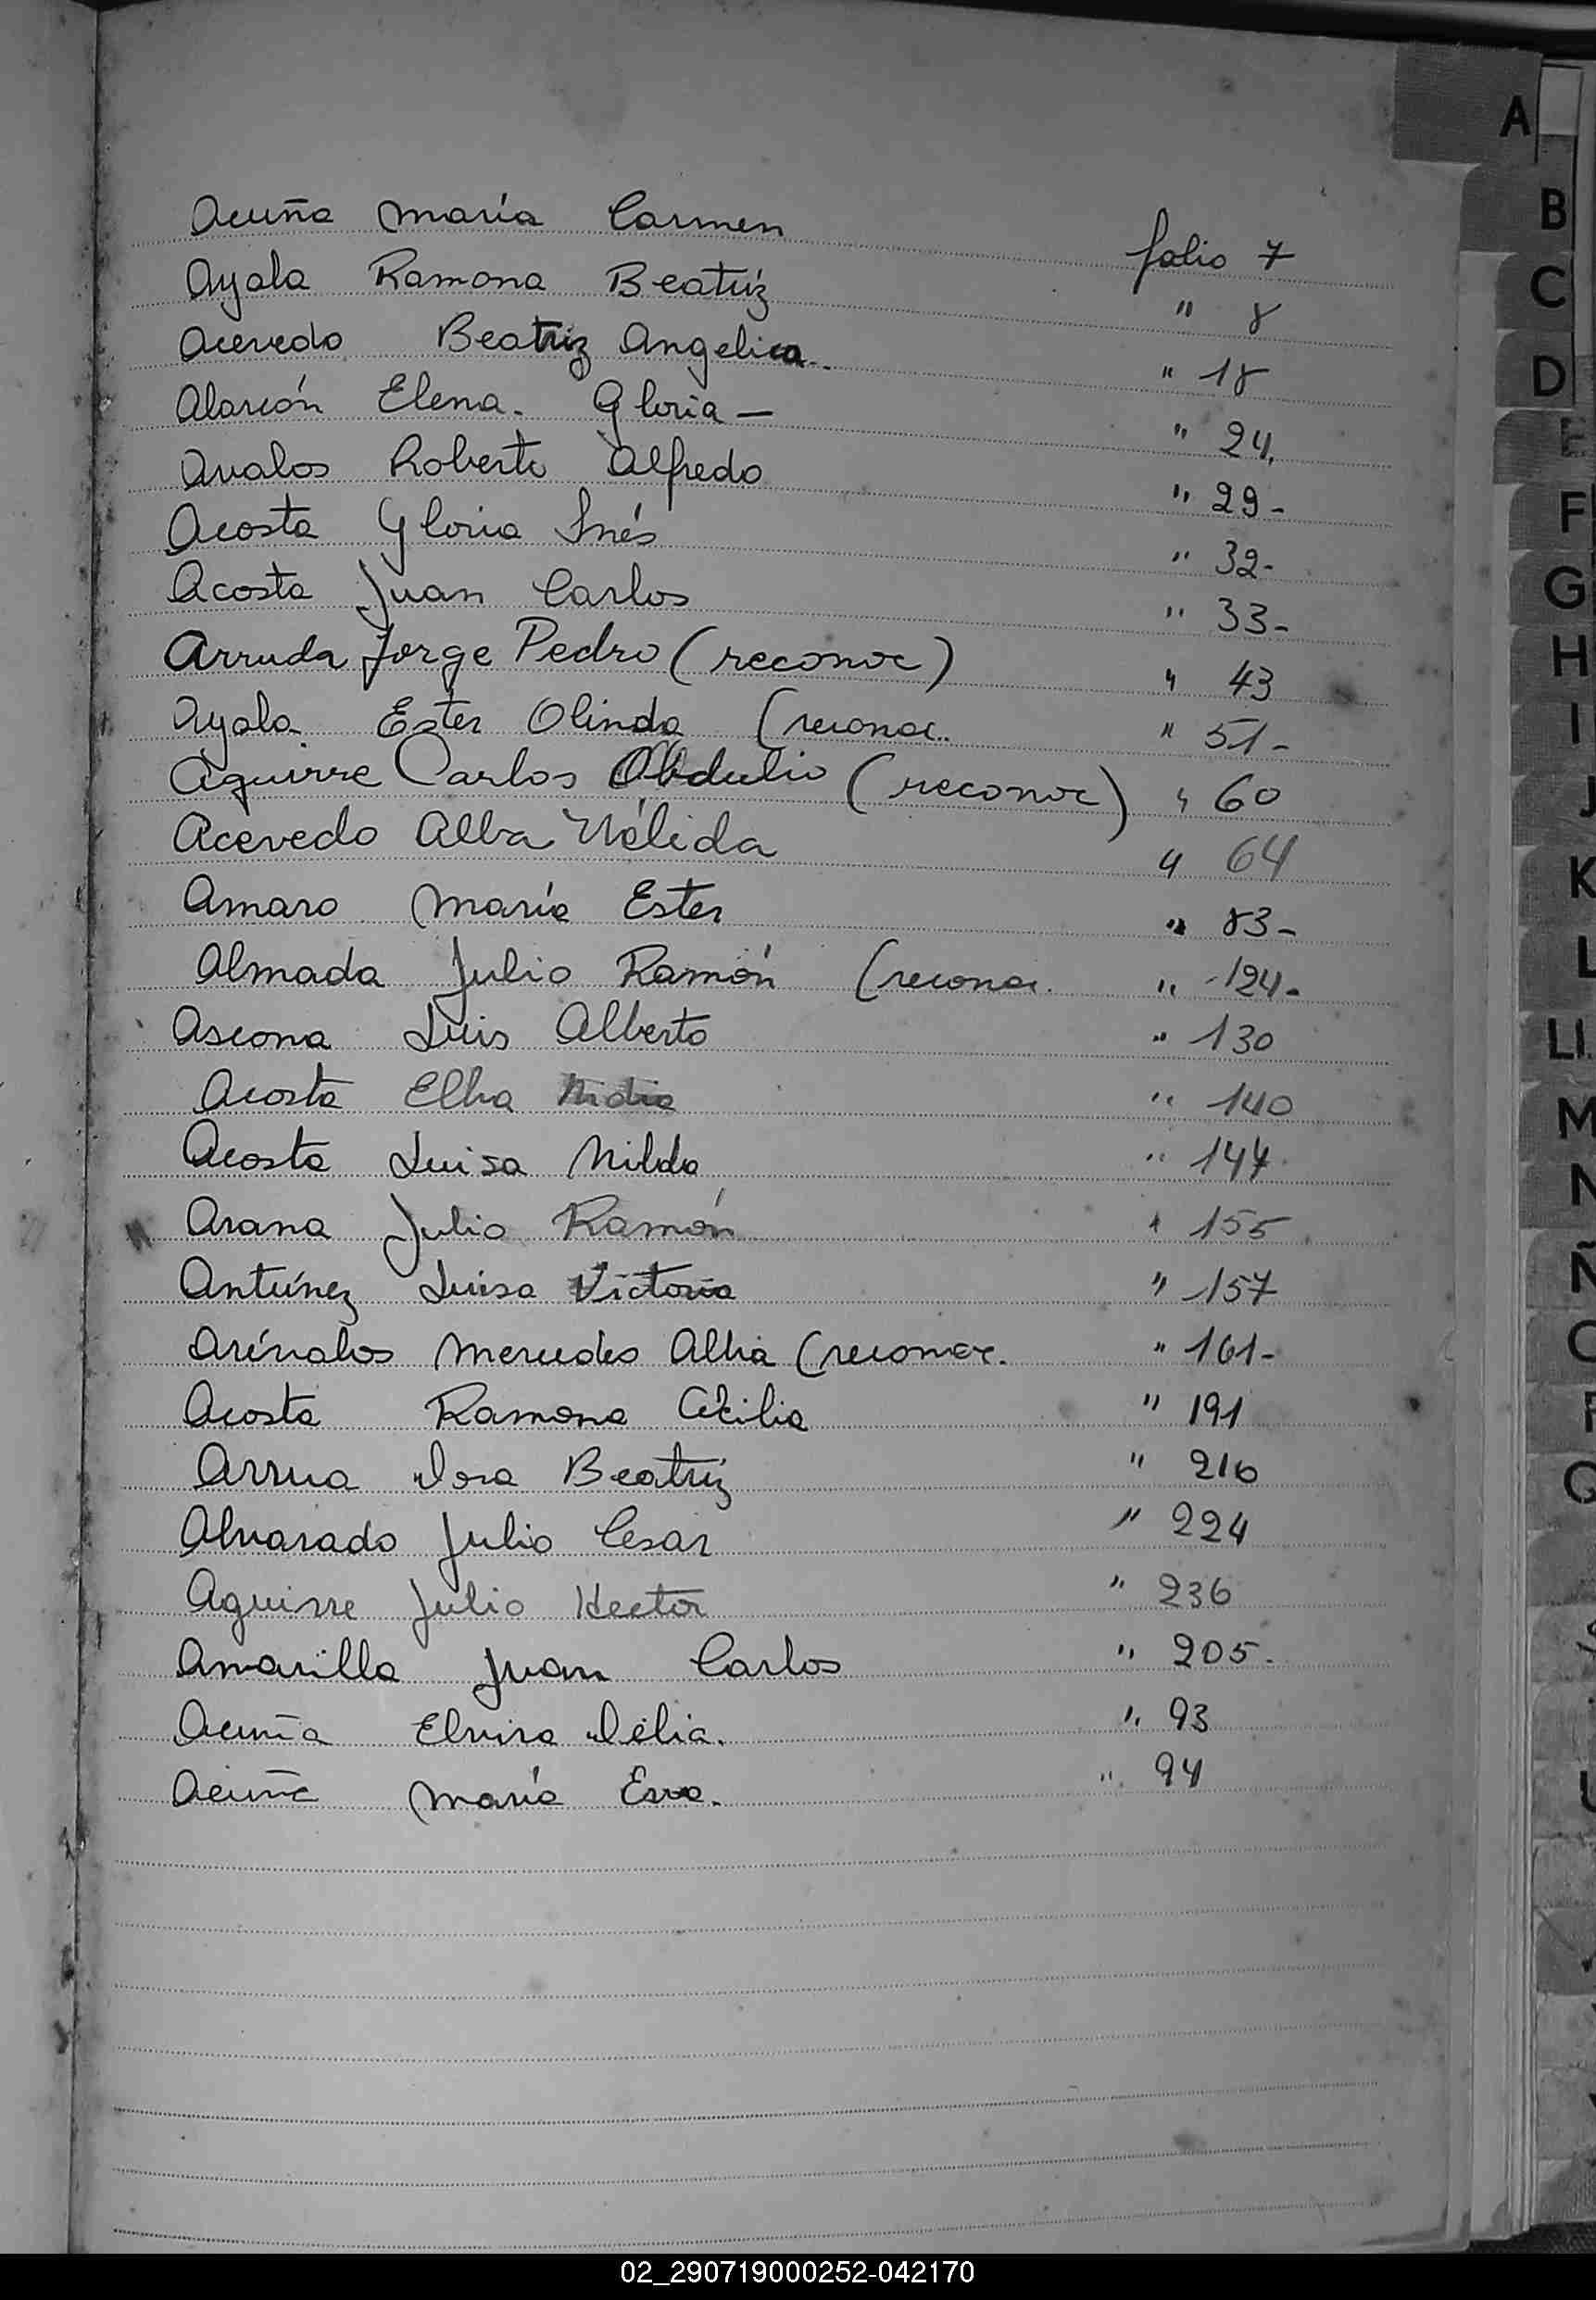 A
B
C
D
E
F
G
H
I
J
K
L
LL
M
N
Ñ
Acuña María Carmen folio 7
Ayala Ramona Beatriz " 8
Acevedo Beatriz Angelica. " 18
Alarcón Elena. Gloria — " 24.
Avalos Roberto Alfredo " 29-
Acosta Gloria Inés " 32-
Acosta Juan Carlos " 33-
Arruda Jorge Pedro (reconoc) " 43
Ayala Ester Olinda (reconoc. " 51-
Aguirre Carlos Obdulio (reconoc) " 60
Acevedo Alba Nélida " 64
Amaro María Ester " 83-
Almada Julio Ramón (reconoc. " 124-
Ascona Luis Alberto " 130
Acosta Elba Nidia " 140
Acosta Luisa Nilda " 147
Arana Julio Ramón " 155
Antúnez Luisa Victoria " 157
Arévalos Mercedes Alba (reconoc. " 161-
Acosta Ramona Cecilia " 191
Arrua Dora Beatriz " 216
Alvarado Julio Cesar " 224
Aguirre Julio Hector " 236
Amarilla Juan Carlos " 205-
Acuña Elvira Delia. " 93
Acuña María Eva. " 94
02_290719000252-042170